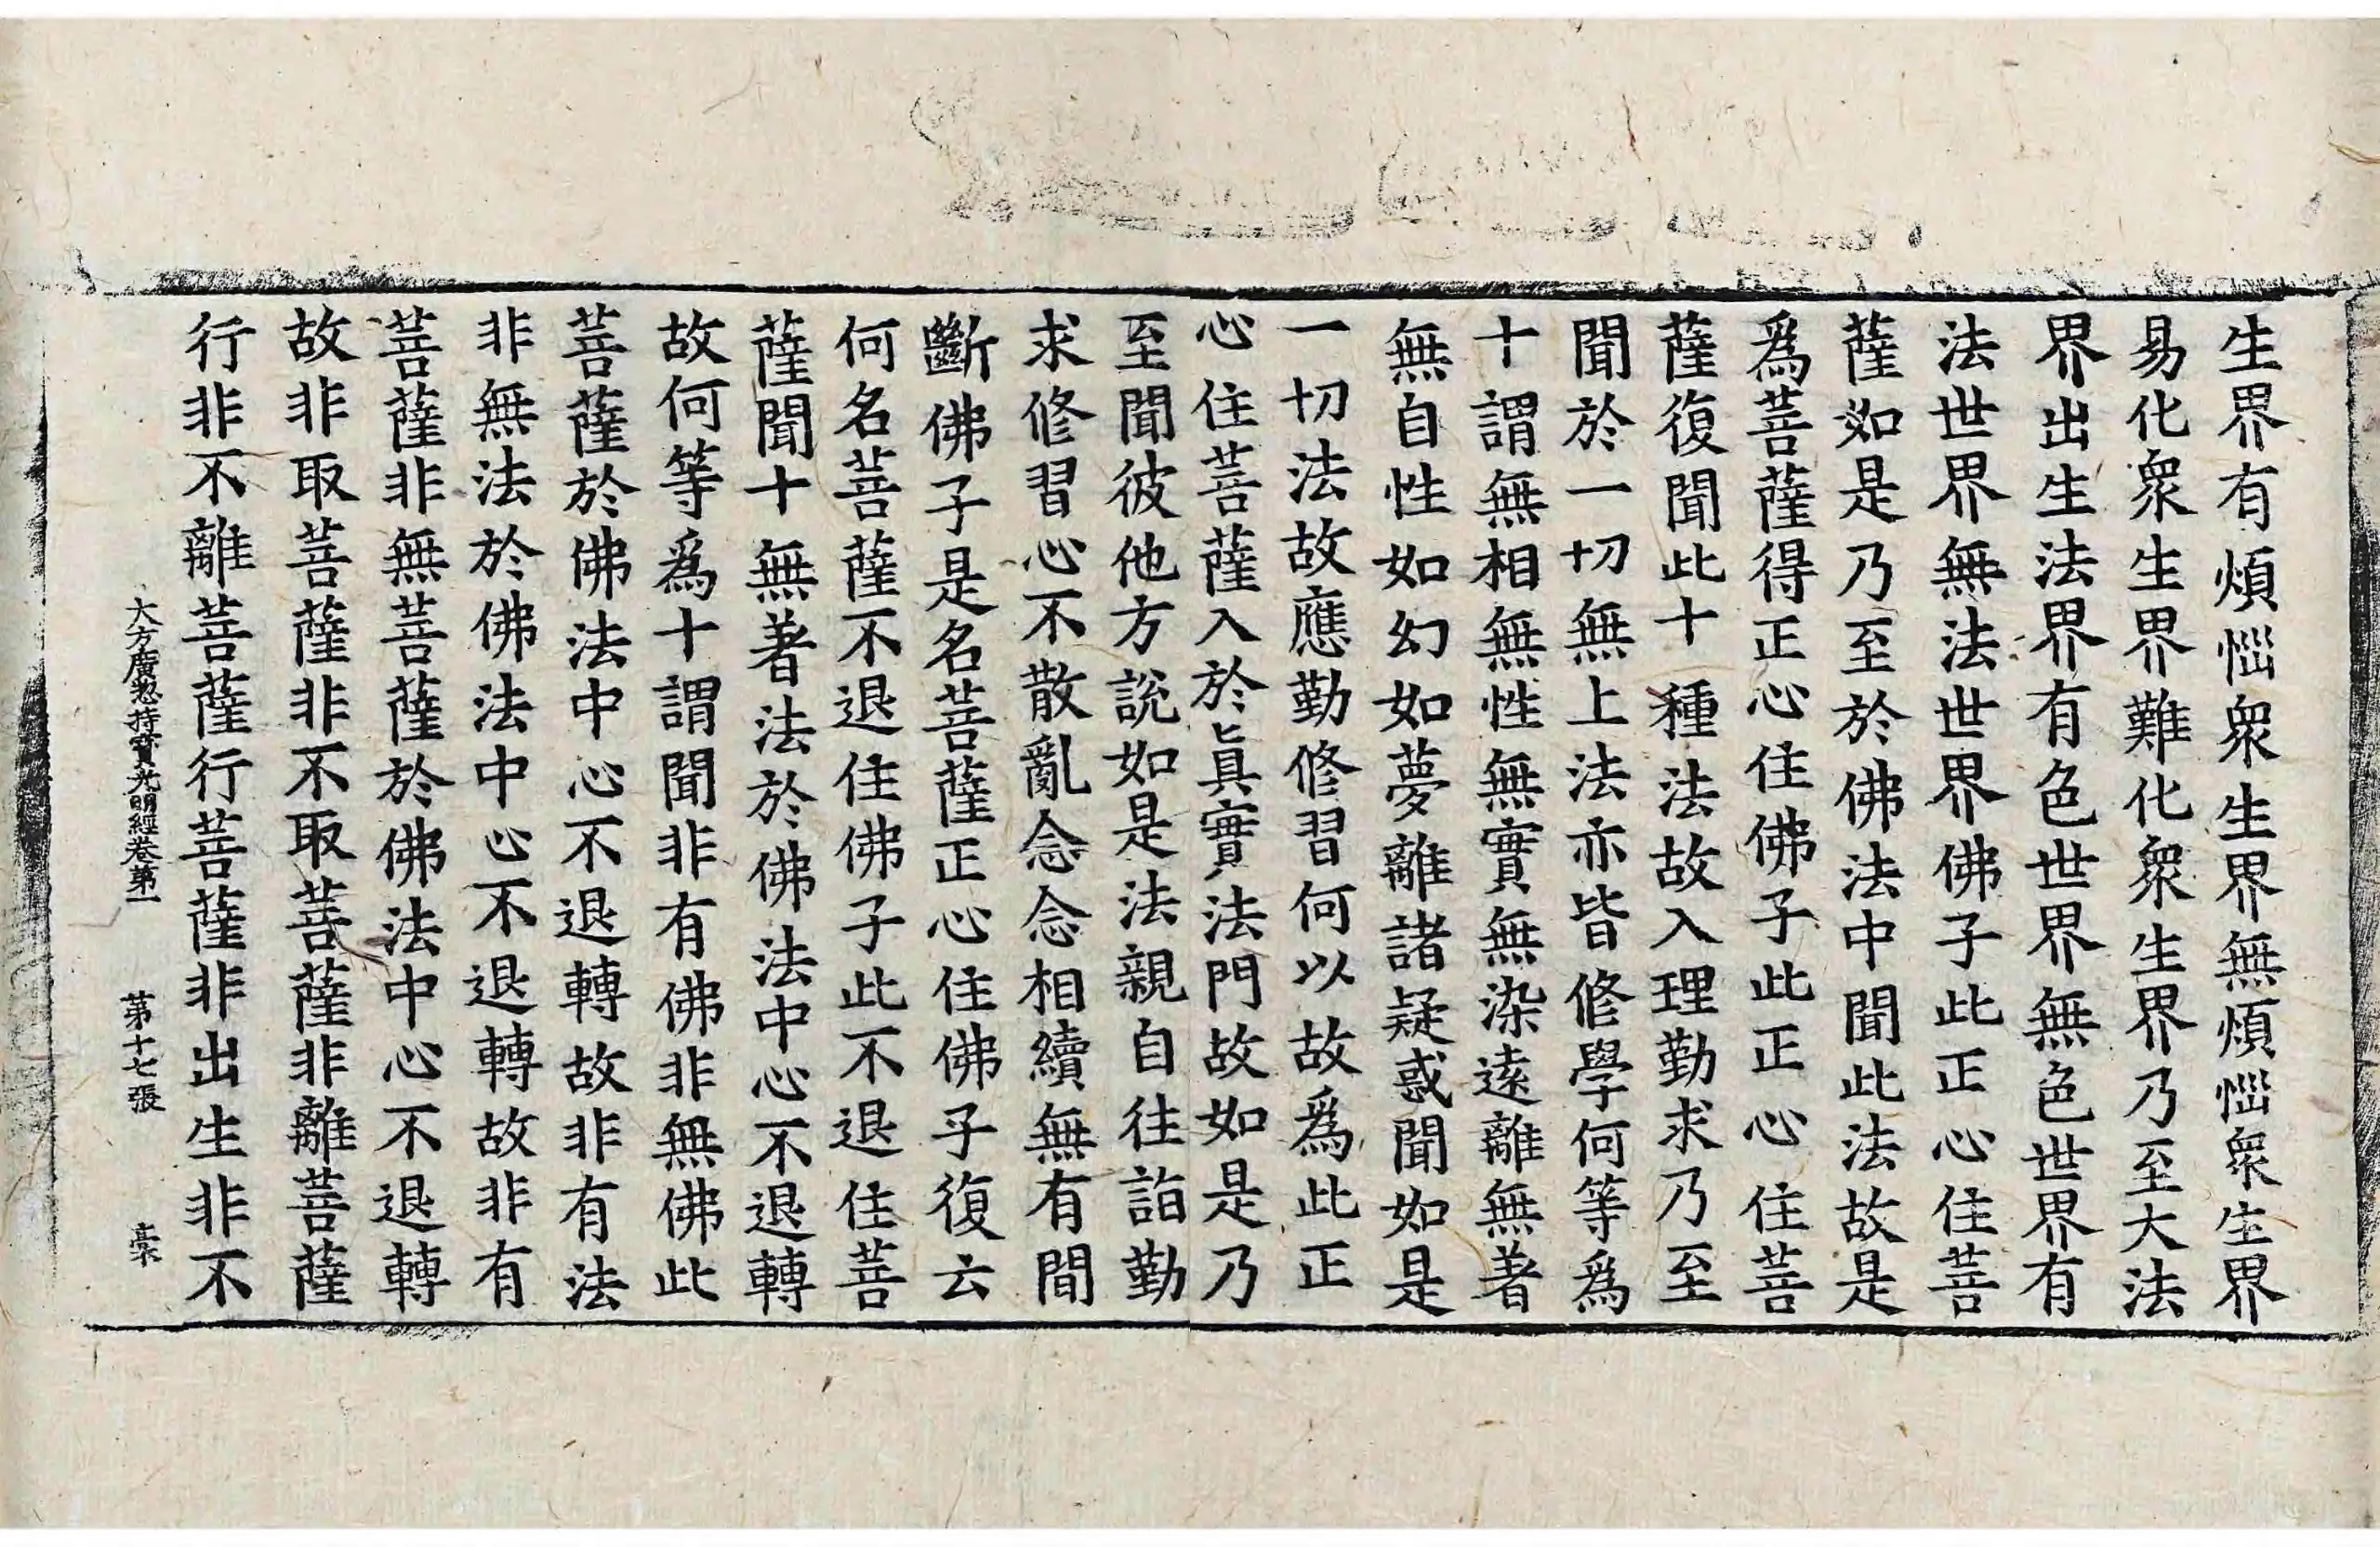 生界有煩惱衆生界無煩惱衆生界
易化衆生界難化衆生界乃至大法
界出生法界有色世界無色世界有
法世界無法世界佛子此正心住菩
薩如是乃至於佛法中聞此法故是
爲菩薩得正心住佛子此正心住菩
薩復聞此十種法故入理勤求乃至
聞於一切無上法亦皆修學何等爲
十謂無相無性無實無染遠離無著
無自性如幻如夢離諸疑惑聞如是
一切法故應勤修習何以故爲此正
心住菩薩入於眞實法門故如是乃
至聞彼他方說如是法親自往詣勤
求修習心不散亂念念相續無有間
斷佛子是名菩薩正心住佛子復云
何名菩薩不退住佛子此不退住菩
薩聞十無著法於佛法中心不退轉
故何等爲十謂聞非有佛非無佛此
菩薩於佛法中心不退轉故非有法
非無法於佛法中心不退轉故非有
菩薩非無菩薩於佛法中心不退轉
故非取菩薩非不取菩薩非離菩薩
行非不離菩薩行菩薩非出生非不
大方廣惣持寶光明經卷第一 第十七張 豪